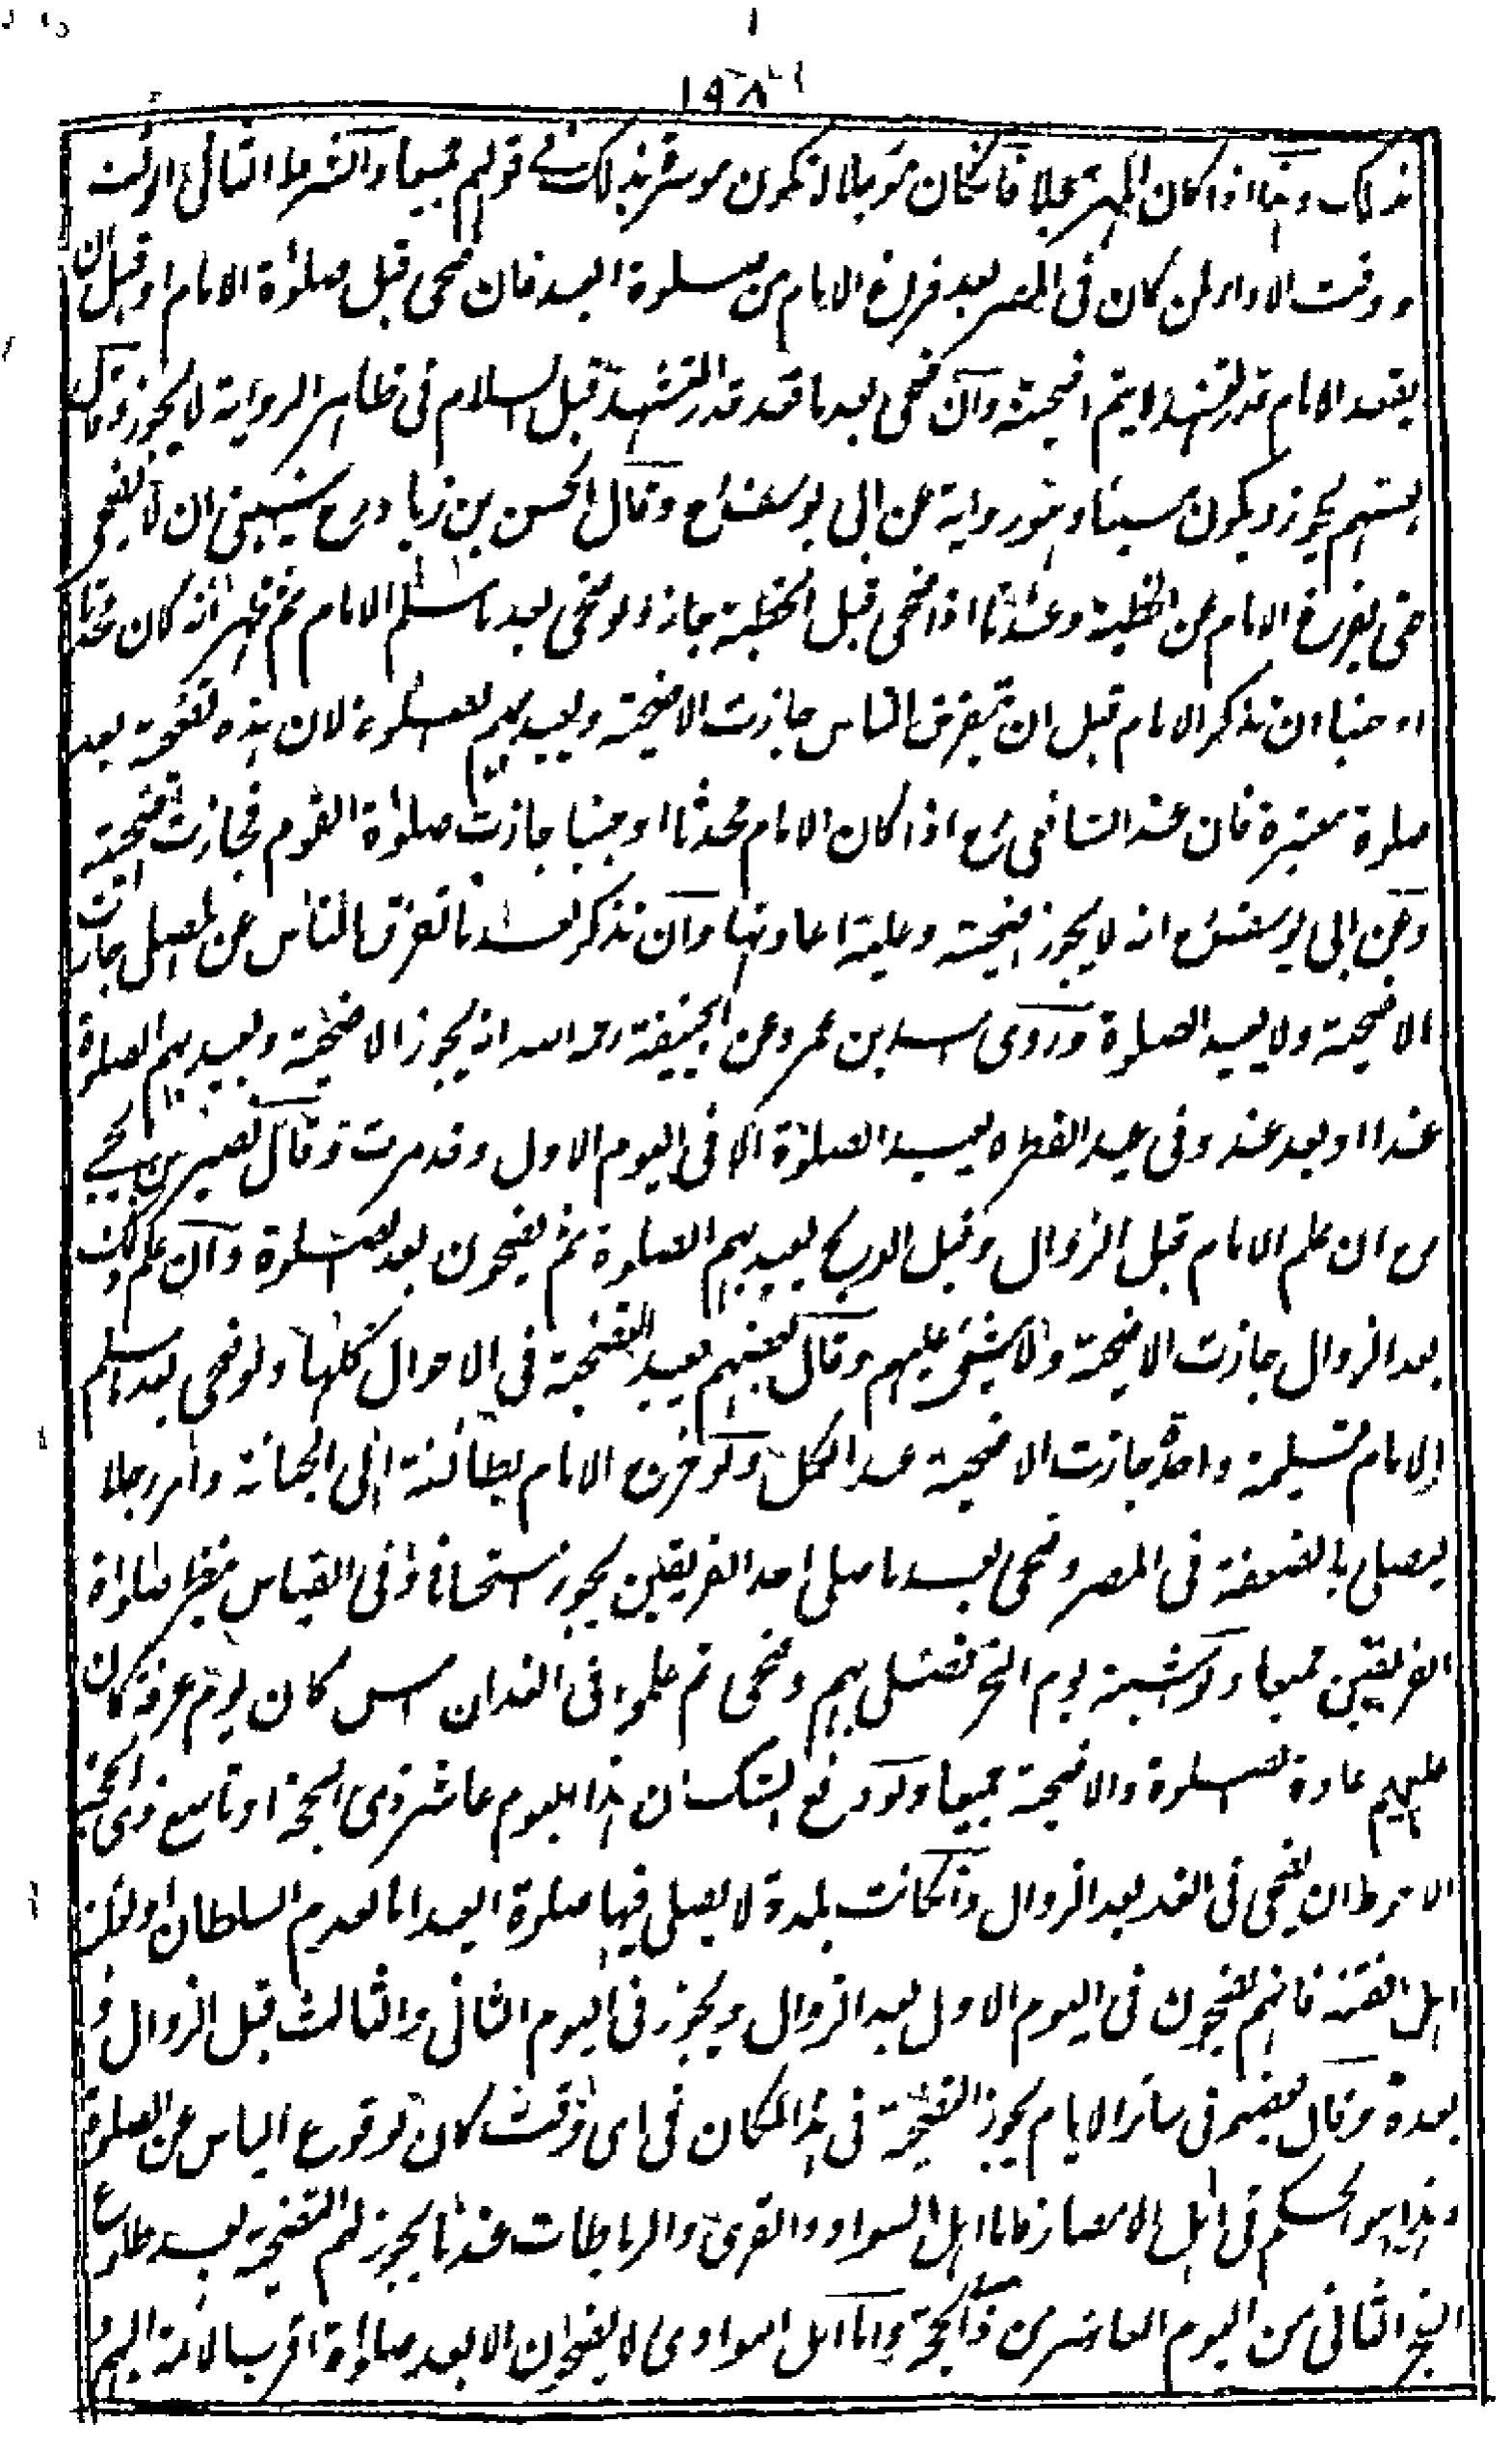 بذلك وهذا اذا كان المهر عجلا فان كان مؤجلا لا يكون موسرا بذلك في قولهم جميعا والشرط الثاني الوقت
ووقت الاداء لمن كان في المصر بعد فراغ الامام من صلوة العيد فان ضحى قبل صلوة الامام او قبل ان
يقعد الامام قدر التشهد لا يتم اضحيته وان ضحى بعد ما قعد قدر التشهد قبل السلام في ظاهر الرواية لا يجوز وقال
بعضهم يجوز ويكون مسيئا وهو رواية عن ابى يوسف رح وقال الحسن بن زياد رح ينبغي ان لا يضحى
حتى يفرغ الامام عن الخطبة وعندنا اذا ضحى قبل الخطبة جاز ولو ضحى بعد ما سلم الامام ثم ظهر انه كان محدثا
او جنبا ان تذكر الامام قبل ان يتفرق الناس جازت الاضحية ويعيد بهم الصلوة لان هذه تضحية بعد
صلوة معتبرة فان عند الشافعى رح اذا كان الامام محدثا او جنبا جازت صلوة القوم فجازت اضحيته
وعن ابى يوسف رح انه لا يجوز اضحيته وعليه اعادتها وان تذكر بعد ما تفرق الناس عن المصلى جازت
الاضحية ولا يعيد الصلوة وروى اسد بن عمرو عن ابى حنيفة رحمه الله انه يجوز الاضحية ويعيد بهم الصلوة
غدا او بعد غد وفى عيد الفطر لا يعيد الصلوة الا فى اليوم الاول وقد مرت وقال نصير بن يحيى
رح ان علم الامام قبل الزوال وقبل الذبح يعيد بهم الصلوة ثم يضحون بعد الصلوة وان علم ذلك
بعد الزوال جازت الاضحية ولا شئ عليهم وقال بعضهم يعيد التضحية فى الاحوال كلها ولو ضحى بعد ما سلم
الامام تسليمة واحدة جازت الاضحية عند الكل ولو خرج الامام بطائفة الى الجبانة وامر رجلا
ليصلى بالضعفة فى المصر وضحى بعد ما صلى احد الفريقين يجوز استحسانا وفى القياس صلوة
الفريقين جميعا ولو شبه يوم النحر فصلى بهم وضحى ثم علموا فى الغد ان امس كان يوم عرفة كان
عليهم اعادة الصلوة والاضحية جميعا ولو وقع الشك ان هذا اليوم عاشر ذى الحجة او تاسع ذى الحجة
الاحوط ان يضحى فى الغد بعد الزوال وان كانت بلدة لا يصلى فيها صلوة العيد اما لعدم السلطان او لغلبة
اهل الفتنة فانهم يضحون فى اليوم الاول بعد الزوال ويجوز فى اليوم الثانى والثالث قبل الزوال و
بعده وقال بعضهم فى سائر الايام يجوز التضحية فى هذا المكان فى اى وقت كان لوقوع الياس عن الصلوة
وهذا هو الحكم فى اهل الامصار فاما اهل السواد والقرى والرباطات عندنا يجوز لهم التضحية بعد طلوع
الفجر الثانى من اليوم العاشر من ذى الحجة واما اهل البوادى لا يضحون الا بعد صلوة اقرب الائمة اليهم